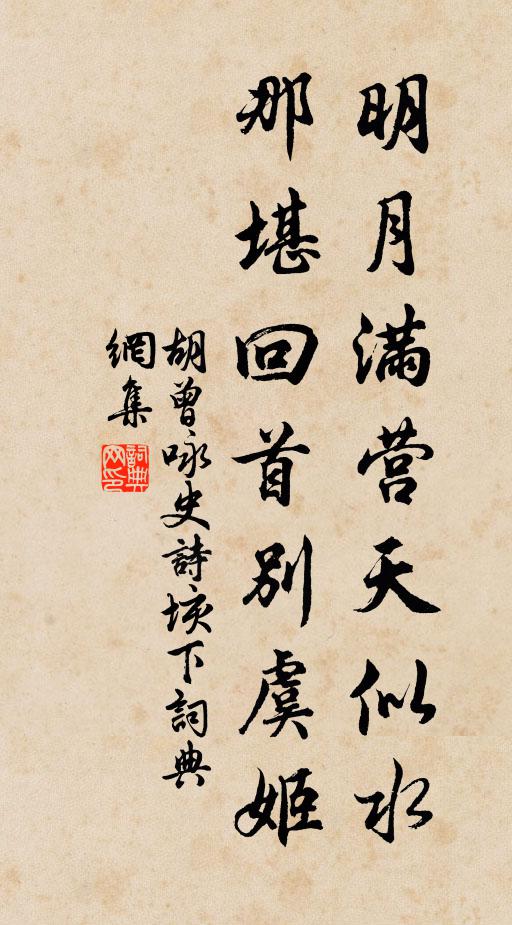 明月滿营天似水
那堪回首別虞姬
胡曾咏史詩垓下詞典
網集
詞典网印